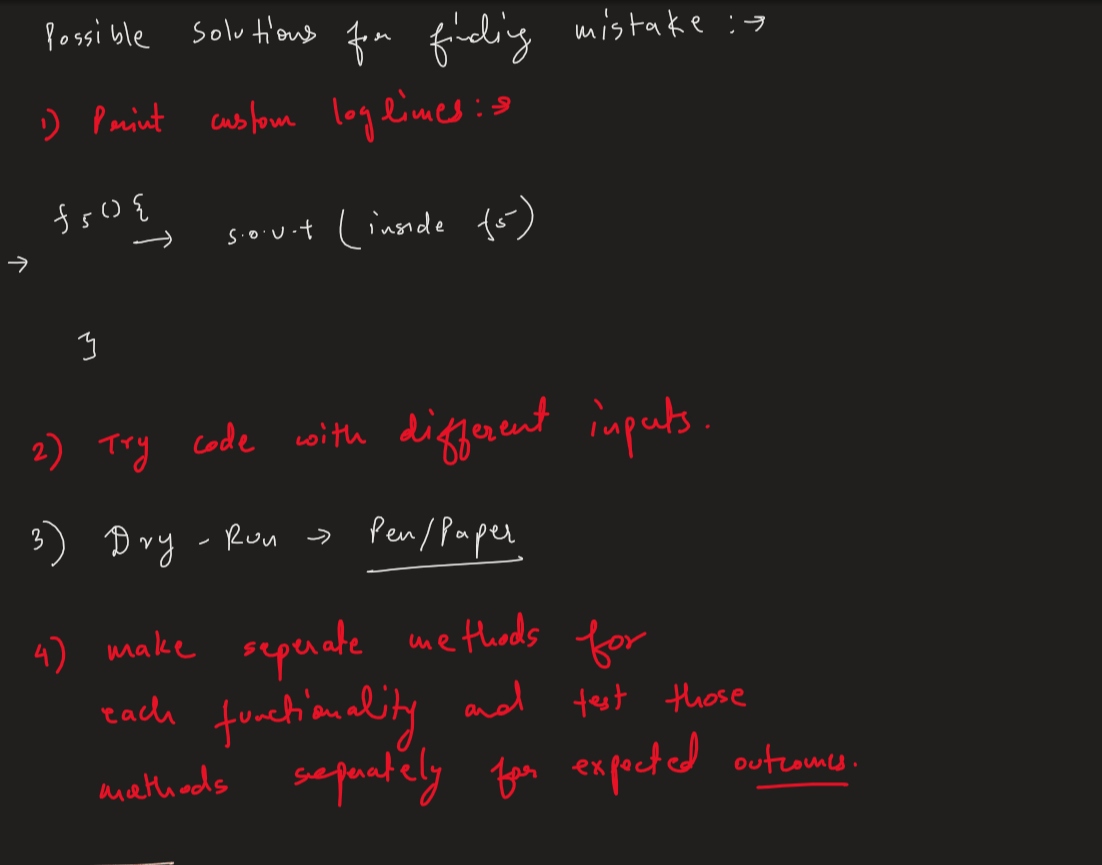 Possible solutions for finding mistake :→
1) Print custom log lines :→
f5(){
→ s.o.u.t (inside f5)
→
}
2) Try code with different inputs.
3) Dry - Run → Pen/Paper
4) make seperate methods for
each functionality and test those
methods seperately for expected outcomes.